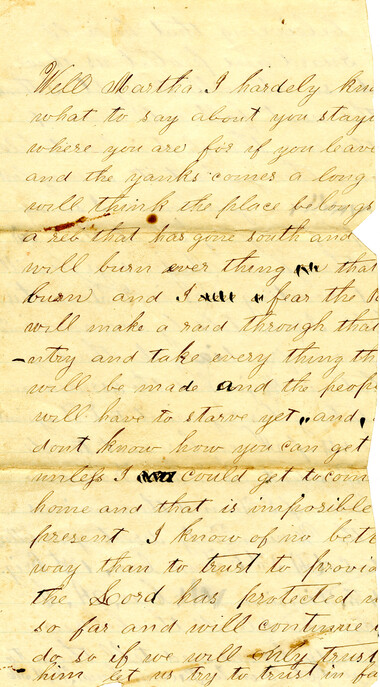 Well Martha I hardely kno
what to say about you stayi
where you are for if you leave
and the yanks comes a long
will think the place belongs
a reb that has gone south and
will burn ever thing that
burn and I fear the
will make a raid through that
ntry and take every thing th
will be made and the peop
will have to starve yet,, and,
dont know how you can get
unless I could get to com
home and that is imposible
present I know of no bett
way than to trust to provid
the Lord has protected
so far and will continue
do so if we will only trust
him let us try to trust in fa